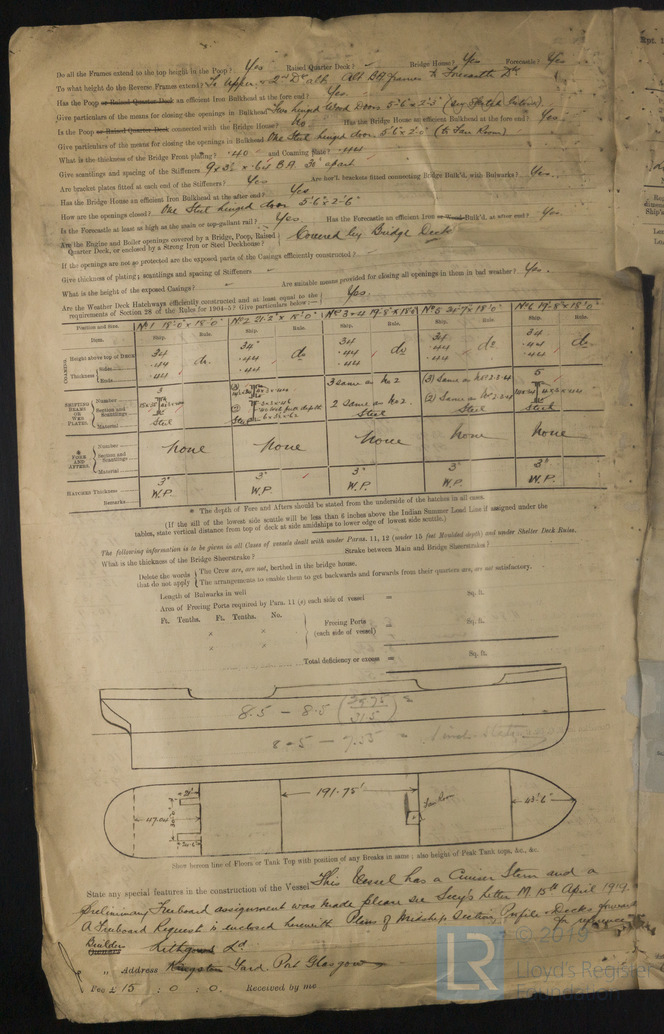 Do all the Frames extend to the top height in the Poop? Yes Raised Quarter Deck? Bridge House? Yes Forecastle? Yes
To what height do the Reverse Frames extend? To Upper & 2nd Dk alt. Alt BA frames to Forecastle Dk
Has the Poop or Raised Quarter Deck an efficient Iron Bulkhead at the fore end? Yes
Give particulars of the means for closing the openings in Bulkhead Two hinged Wood Doors 5'6" x 2'3"
Is the Poop or Raised Quarter Deck connected with the Bridge House? No Has the Bridge House an efficient Bulkhead at the fore end? Yes
Give particulars of the means for closing the openings in Bulkhead One Steel hinged door 5'6" x 2'0" (to Fan Room)
What is the thickness of the Bridge Front plating? .40 and Coaming Plate? .44
Give scantling and spacing of the Stiffeners 9 x 3½ x BA 30" apart
Are bracket plates fitted at each end of the Stiffeners? Yes Are hor'l. brackets fitted connecting Bridge Bulk'd. with Bulwarks? Yes
Has the Bridge House an efficient Iron Bulkhead at the after end? Yes
How are the openings closed? One Steel hinged door 5'6" x 2'6"
Is the Forecastle at least as high as the main or top-gallant rail? Yes Has the Forecastle an efficient Iron or Wood Bulk'd. at after end? Yes
Are the Engine and Boiler openings covered by a Bridge, Poop, Raised Quarter Deck, or enclosed by a Strong Iron or Steel Deckhouse? Covered by Bridge Deck
If the openings are not so protected are the exposed parts of the Casings efficiently constructed?
Give thickness of plating; scantlings and spacing of Stiffeners
What is the height of the exposed Casings? Are suitable means provided for closing all openings in them in bad weather? Yes.
Are the Weather Deck Hatchways efficiently constructed and at least equal to the requirements of Section 28 of the Rules for 1904-5? Give particulars below:— Yes.
Position and Size. No 1 18'0" x 18'0" No 2 21'2" x 18'0" No 3 & 4 19'8 x 18'0 No 5 x 18'0" No 6 19'8" x 18'0"
Item. Ship. Rule. Ship. Rule. Ship. Rule. Ship. Rule. Ship. Rule.
COAMING. Height above top of Deck 34 do. 34" do 34 do 34 do 34 do.
Thickness Sides .44 .44 .44 .44 .44
Ends .44 .44 .44 .44 .44
SHIFTING BEAMS OR WEB PLATES. Number 3 (3) 3 Same as No 2 (3) Same as No 2.3.4 5
Section and Scantlings (2) 2 Same as No 2. (2) Same as No 2.3.4
Material Steel Steel Steel Steel Steel
* FORE AND AFTERS. Number
Section and Scantlings None None None None None
Material
HATCHES Thickness 3" 3" 3" 3" 3"
Remarks W.P. W.P. W.P. W.P. W.P.
* The depth of Fore and Afters should be stated from the underside of the hatches in all cases.
(If the sill of the lowest side scuttle will be less than 6 inches above the Indian Summer Load Line if assigned under the
tables, state vertical distance from top of deck at side amidships to lower edge of lowest side scuttle.)
The following information is to be given in all Cases of vessels dealt with under Paras. 11, 12 (under 15 feet Moulded depth) and under Shelter Deck Rules.
What is the thickness of the Bridge Sheerstrake? Strake between Main and Bridge Sheerstrakes?
Delete the words that do not apply { The Crew are, are not, berthed in the bridge house.
The arrangements to enable them to get backwards and forwards from their quarters are, are not satisfactory.
Length of Bulwarks in well = Sq. ft.
Area of Freeing Ports required by Para. 11 (e) each side of vessel =
Ft. Tenths. Ft. Tenths. No.
× } Freeing Ports = Sq. ft.
× (each side of vessel)
×
Total deficiency or excess = Sq. ft.
8.5 — 8.5 =
8.5 — 7.55 =
191.75'
Fan Room
47.04
43'6"
Show hereon line of Floors or Tank Top with position of any Breaks in same; also height of Peak Tank tops, &c., &c.
State any special features in the construction of the Vessel This Vessel has a Cruiser Stern and a
preliminary Freeboard assignment was made please see Secy's Letter M 15th April 1919.
A Freeboard Request is enclosed herewith Plans of Midship Section, Profile & Decks forward
for reference
Builders Owners Lithgows Ld
" Address Kingston Yard, Port Glasgow
Fee £ 15 : 0 : 0. Received by me
LR
© 2019
Lloyd's Register
Foundation